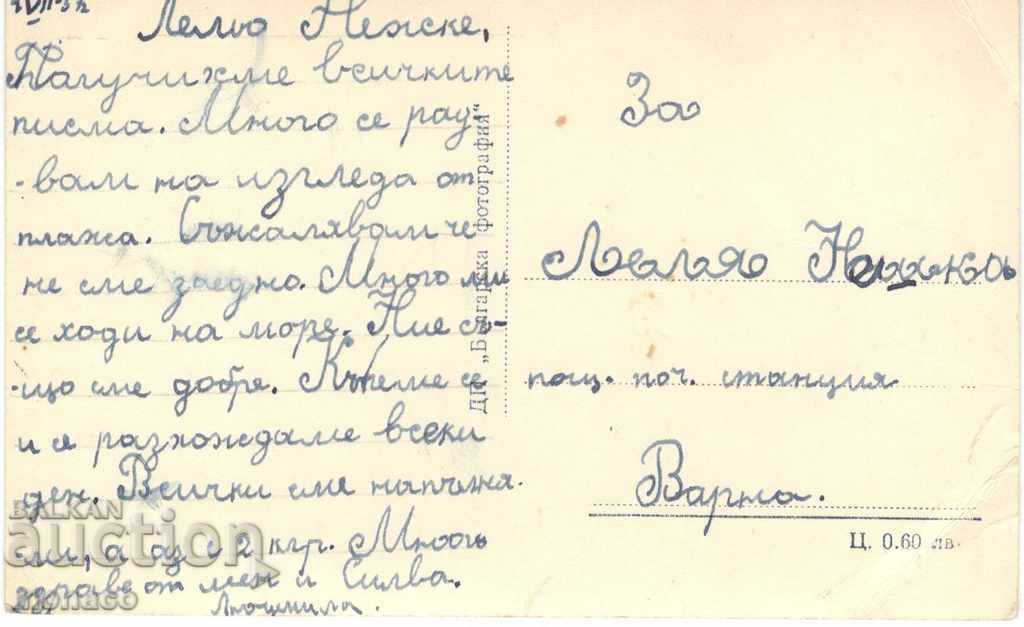 Лельо Нежке,
Получихме всичките
писма. Много се рад-
вам на изгледа от
плажа. Съжалявам че
не сме заедно. Много ми
се ходи на море. Ние съ-
що сме добре. Къпеме се
и се разхождаме всеки
ден. Всички сме напълня-
ли, а аз с 2 кгр. Много
здраве от мен и Силва.
Людмила.
ДП „Българска фотография“
За
Леля
поч. станция
Варна.
Ц. 0.60 лв.
BALKAN
auction
monaco